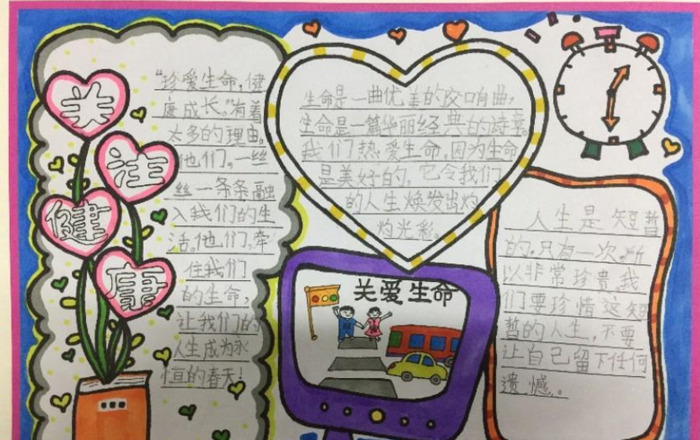 关
注
健
康
“珍爱生命,健
康成长。”有着
太多的理由。
他们,一丝
丝一条条融
入我们的生
活。他们,牵
住我们
的生命,
让我们的
人生成为永
恒的春天!
生命是一曲优美的交响曲,
生命是一篇华丽经典的诗章。
我们热爱生命,因为生命
是美好的,它令我们
的人生焕发出灼
灼光彩。
关爱生命
人生是短暂
的,只有一次,所
以非常珍贵,我
们要珍惜这短
暂的人生,不要
让自己留下任何
遗憾。